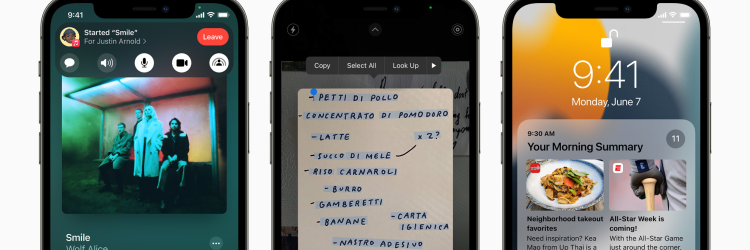 9:41
Started “Smile”
For Justin Arnold >
Leave
Smile
Wolf Alice
Copy
Select All
Look Up
- PETTI DI POLLO
- CONCENTRATO DI POMODORO
- LATTE
x 2?
- SUCCO DI MELE
- RISO CARNAROLI
- BURRO
- GAMBERETTI
- BANANE
- CARTA
IGIENICA
- NASTRO ADESIVO
9:41
Monday, June 7
9:30 AM
Your Morning Summary
11
Neighborhood takeout
favorites
Need inspiration? Kea
Mao from Up Thai is a
All-Star Week is
coming!
With the All-Star Game
just around the corner,